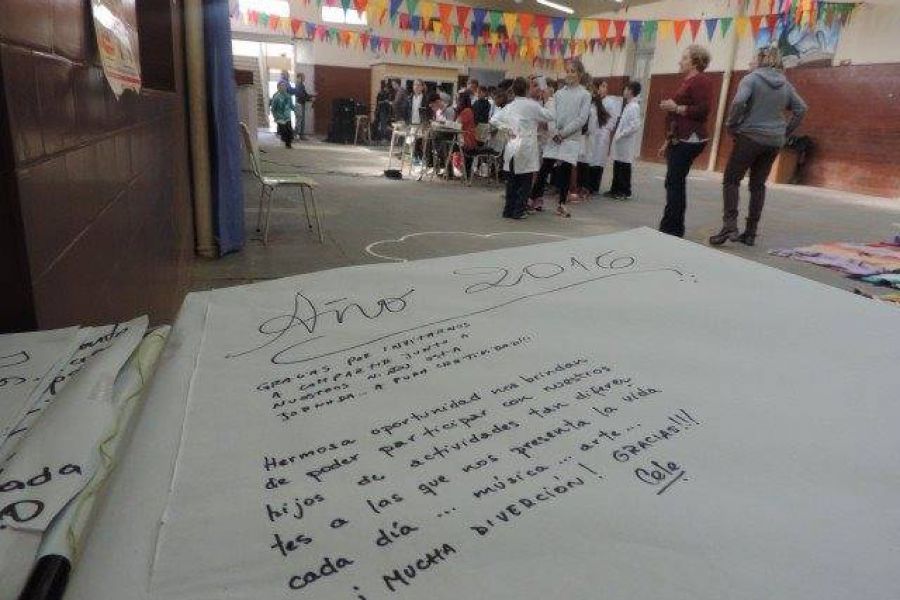 Año 2016
GRACIAS POR INVITARNOS
A COMPARTIR JUNTO A
NUESTROS NIÑOS ESTA
JORNADA... A PURA CREATIVIDAD!!
Hermosa oportunidad nos brindan
de poder participar con nuestros
hijos de actividades tan diferen
tes a las que nos presenta la vida
cada día ... música ... arte ...
¡ MUCHA DIVERCIÓN! GRACIAS!!!
Cele
ada